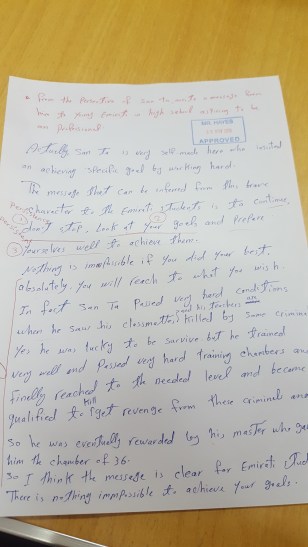 * From the Perspective of San ta, write a message from
him to young Emirati in high school aiming to be
an professional.
MR HAYES
APPROVED
Actually San Ta is very self made hero who insisted
on achieving specific goal by working hard.
The message that can be inferred from this brave
character to the Emirati students is to Continue,
don't stop, Look at your goals, and Prepare
③ yourselves well to achieve them.
Nothing is imposssible if you did your best.
absolutely, you will reach to what you wish
In fact San Ta Passed very hard conditions
and his teachers are
when he saw his classmates killed by some crimina
Yes he was lucky to be survive but he trained
very well and Passed very hard training chambers and
finelly reached to the needed level and became
qualified to get revenge from these criminal and
kill
So he was eventually rewarded by his master who gav
him the chamber of 36.
So I think the message is clear for Emirati Stud
There is nothing impossible to achieve your goals.